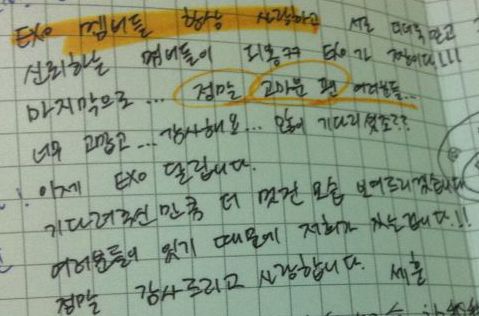 EXO 멤버들 항상 사랑하고 서로 믿어주고
신뢰하는 멤버들이 되용ㅋㅋ EXO가 짱이다!!!
마지막으로... 정말 고마운 팬 여러분들...
너무 고맙고... 감사해요... 많이 기다리셨죠??
이제 EXO 달립니다.
기다려주신 만큼 더 멋진 모습 보여드리겠습니다
여러분들이 있기 때문에 저희가 있는겁니다.!!
정말 감사드리고 사랑합니다. 세훈